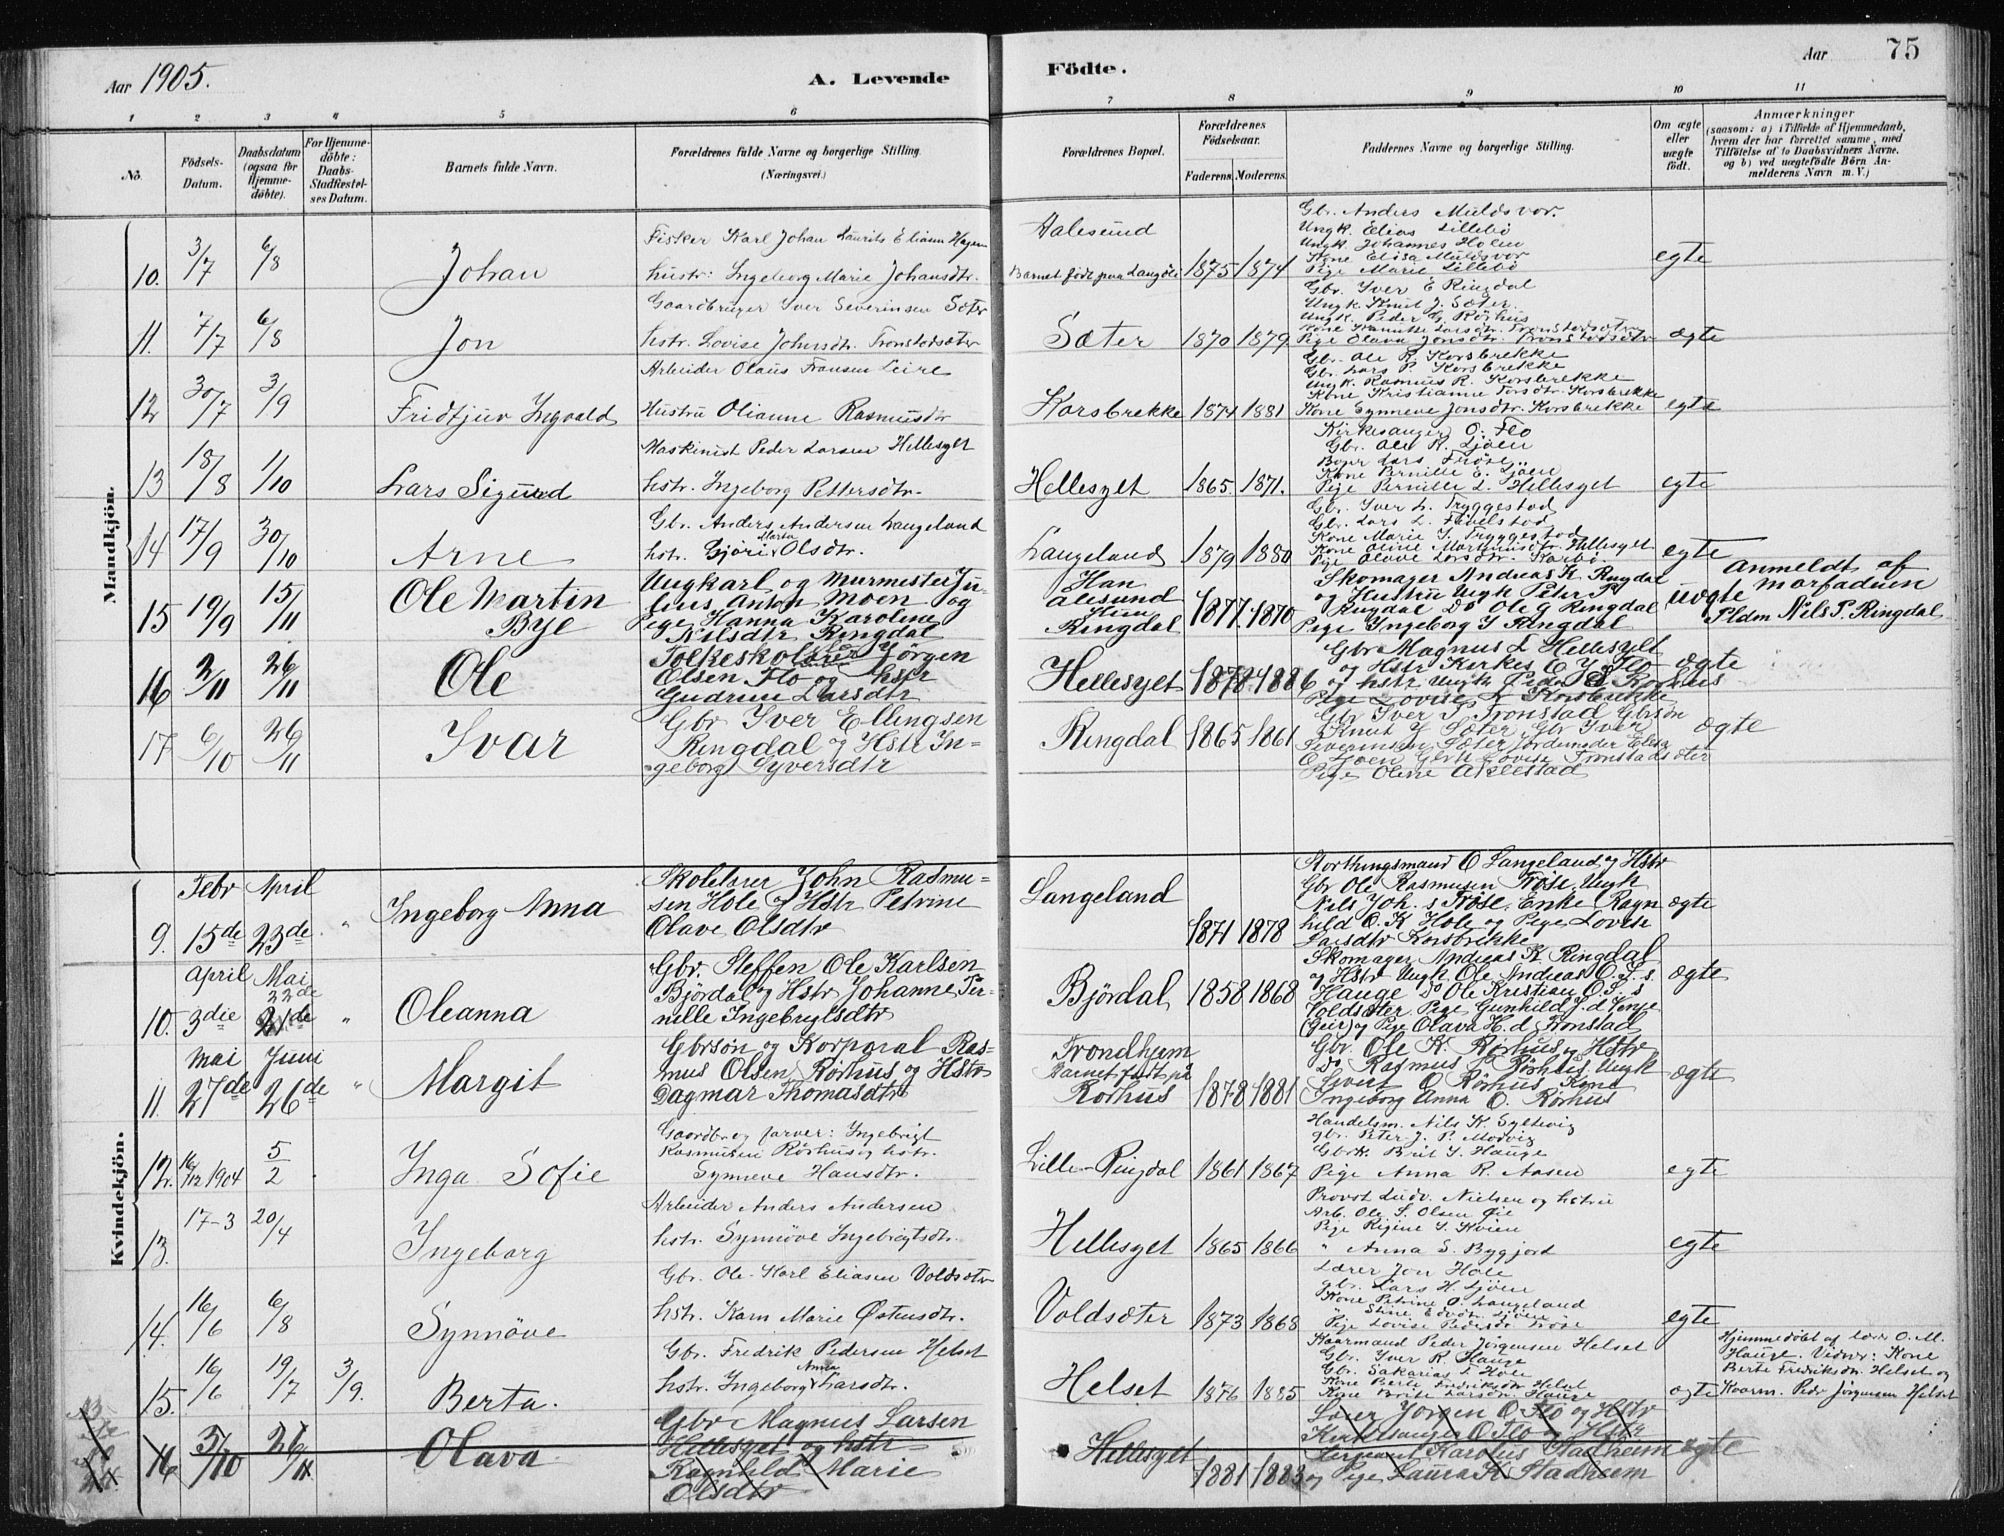 Aar 1905.
A. Levende
Födte.
Aar
75
1 2 3 4 5 6 7 8 9 10 11
No.
Födsels-Datum.
Daabsdatum (ogsaa for Hjemme-döbte).
For Hjemme-döbte: Daabs-Stadfæstel-ses Datum.
Barnets fulde Navn.
Forældrenes fulde Navne og borgerlige Stilling. (Næringsvei.)
Forældrenes Bopæl.
Forældrenes Födselsaar.
Faderens. Moderens.
Faddernes Navne og borgerlige Stilling.
Om ægte eller uægte födt.
Anmærkninger
(saasom: a) i Tilfælde af Hjemmedaab,
hvem der har forrettet samme, med
Tilföielse af to Daabsvidners Navne,
og b) ved uægtefödte Börn An-
melderens Navn m. V.)
Mandkjön.
10. 3/7 6/8 Johan
Fisker Karl Johan Laurits Eliasen Hagen
hustr: Ingeborg Marie Johansdtr.
Aalesund
Barnet födt paa Langöle 1875 1874
Gbr. Anders Muldsvor.
Ungk. Elias Lillebö
Ungk. Johannes Holen
Kone Elisa Muldsvor
Pige Marie Lillebö
egte
11. 7/7 6/8 Jon
Gaardbruger Iver Severinsen Sæter
hstr. Lovise Johnsdtr. Tronstadsæter
Sæter 1870 1879
Gbr. Iver E Ringdal
Ungk. Knut J. Sæter.
Ungk. Peder G. Rörhus
Pige Olava Jonsdtr. Tronstadsætr
ægte
12 30/7 3/9 Fridtjuv Ingvald
Arbeider Olaus Fransen Leire
Hustru Olianne Rasmusdtr
Korsbrekke 1874 1881
Gbr. Ole R. Korsbrekke
Gbr. Lars P. Korsbrekke
Ungk. Rasmus R. Korsbrekke
Kone Kristianne Korsbrekke
Kone Synneve Jonsdtr. Korsbrekke
egte
13 18/8 1/10 Lars Sigurd
Maskinist Peder Larsen Hellesylt
hstr. Ingeborg Pettersdtr.
Hellesylt 1865. 1871.
Kirkesanger O. Flo
Gbr. Ole K. Ljöen
Kone Pernille E. Ljöen
Pige Pernille L. Hellesylt
egte
14 17/9 30/10 Arne
Gbr. Anders Andersen Langeland
hstr. Gjöri Marta Olsdtr.
Langeland 1879 1880
Gbr. Iver L. Tryggestad
Gbr. Lars L. Fivelstad
Kone Marie I. Tryggestad
Kone Oline Martinusdtr. Hellesylt
Pige Olave Larsdtr. Karbö
egte
15 19/9 15/11 Ole Martin
Bye
Ungkarl og Murmester Ju-
lius Anton Moen og
Pige Hanna Karoline
Nilsdtr Ringdal
Han
Alesund
Hun
Ringdal 1877. 1870
Skomager Andreas K Ringdal
og Hustru Ungk Peter P
Ringdal Do Ole G Ringdal
Pige Ingeborg I Ringdal
uægte
Anmeldt af
Morfaderen
Pldm Nils P. Ringdal
16 2/11 26/11 Ole
Folkeskolelærer Jörgen
Olsen Flo og hstr
Gudrun Larsdtr
Hellesylt 1878 1886
Gbr Magnus L Hellesylt
og Hstr Kirkes O J Flo
og hstr Ungk Peder S Rörhus
Pige Lovise L Korsbrekke
ægte
17 6/10 26/11 Ivar
Gbr Iver Ellingsen
Ringdal og Hstr In-
geborg Syversdtr
Ringdal 1865 1861
Gbr Iver T Tronstad Gbrsön
Knut J Sæter Gbr Iver
Severinsen Sæter Jordemoder Elisa
O Ljöen Gbrk Lovise Tronstadsæter
Pige Oline Aklestad
ægte
Kvindekjön.
9. Febr 15de April 23de " Ingeborg Anna
Skolelærer John Rasmu-
sen Hole og Hstr Petrine
Olave Olsdtr
Langeland 1871 1878
Storthingsmand O Langeland og Hstr
Gbr Ole Rasmusen Tröse, Ungk
Nils Joh. s Tröse, Enke Ragn
hild O. K Hole og Pige Lovise
Larsdtr Korsbrekke
ægte
10. April 3die Mai 22de 21de " Oleanna
Gbr. Steffen Ole Karlsen
Björdal og Hstr Johanne Per-
nille Ingebrigtsdtr
Björdal 1858 1868
Skomager Andreas K Ringdal
og Hstr Ungk Ole Andreas O.S. s
Hauge Do Ole Kristian O.S. s
Voldsæter Pige Gunhild J.d Yenje
(Geir) og Pige Olava H.d Konstad
ægte
11. Mai 27de Juni 26de " Margit
Gbrsön og Korporal Ras-
mus Olsen Rörhus og Hstr
Dagmar Thomasdtr
Trondhjem
Barnet födt på
Rörhus 1878 1881
Gbr. Ole K. Rörhus og Hstr
Do Rasmus Rörhus, Ungk
Sivert O Rörhus Kone
Ingeborg Anna O. Rörhus
ægte
12. 16/12 1904 5/2 Inga Sofie
Gaardbr og farver: Ingebrigt
Rasmusen Rörhus og hstr.
Synneve Hansdtr.
Lille-Ringdal 1861 1867
Handelsm. Nils K. Syltevig
gbr. Peter J. P. Modvig
Gbrk. Brit I. Hauge
Pige Anna R. Aasen
egte
13. 17-3 20/4 Ingeborg
Arbeider Anders Andersen
hstr. Synnöve Ingebrigtsdtr.
Hellesylt 1865 1866
Provst Ludv. Nielsen og hstru
Arb. Ole S. Olsen Öie
Pige Rigine I. Kvien
" Anna S. Bygjord
egte
14. 16/6 6/8 Synnöve
Gbr. Ole Karl Eliasen Voldsæter
hstr. Karn Marie Östensdtr.
Voldsæter 1873 1868
Lærer Jon Hole
gbr. Lars H. Ljöen
Kone Petrine O. Langeland
" Stine Edvdtr. Ljöen
Pige Lovise Pedersdr Tröse
egte
15. 16/6 19/7 3/9. Berta.
Gbr. Fredrik Pedersen Helset
hstr. Ingeborg Anna Larsdtr.
Helset 1876 1885
Kaarmand Peder Jörgensen Helset
Gbr. Iver R. Hauge
Gbr. Sakarias T. Hole
Kone Berte Fredriksdtr Helset
Kone Brite Larsdtr. Hauge
ægte
Hjemmedöbt af lærer O. M.
Hauge. Vidner: Kone
Berte Fredriksdtr. Helset og
Kaarm. Pedr Jörgensen Helset
16 3/10 26/11 Olava
Gbr Magnus Larsen
Hellesylt og hstr
Ragnhild Marie
Olsdtr
Hellesylt 1881 1883
Lærer Jörgen O Flo og Hstr
Kirkesanger O Flo og Hstr
Sergeant Karolus Stadheim
og Pige Laura K Stadheim
ægte